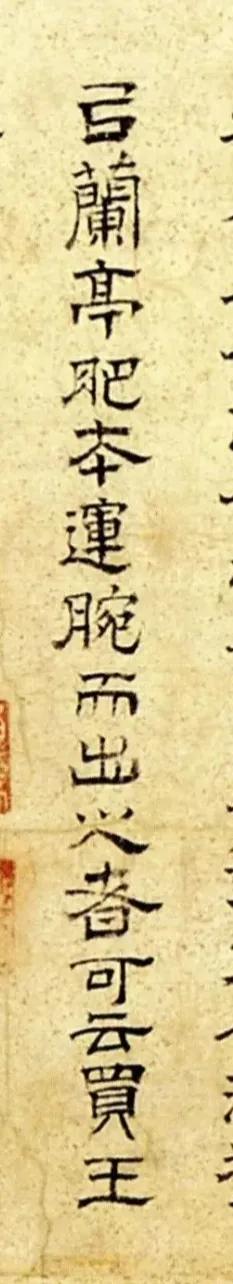 㠯蘭亭肥本運腕而出之者可云買王